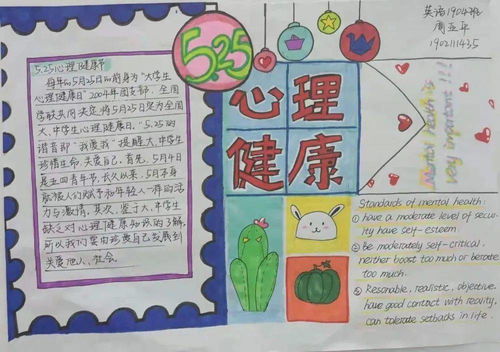 英语1904班
周亚平
1902111435
5.25
心理
健康
5.25心理健康节
每年的5月25日的前身为“大学生
心理健康日”2004年团支部、全国
学联共同决定将5月25日定为全国
大、中学生心理健康日。“5.25的
谐音即“我爱我”提醒大、中学生
珍惜生命、关爱自己。首先，5月4日
是五四青年节，长久以来，5月本身
就被人们赋予和年轻人一样的活
力与激情。其次，鉴于大、中学生
缺乏对心理健康知识的了解，
所以我们要由珍爱自己发展到
关爱他人、社会。
Mental Health is
very important !!!
Standards of mental health:
① have a moderate level of secur-
ity have self-esteem.
② Be moderately self-critical,
neither boost too much or berate
too much.
③ Resonable, realistic, objective.
have good contact with reality,
can tolerate setbacks in life.